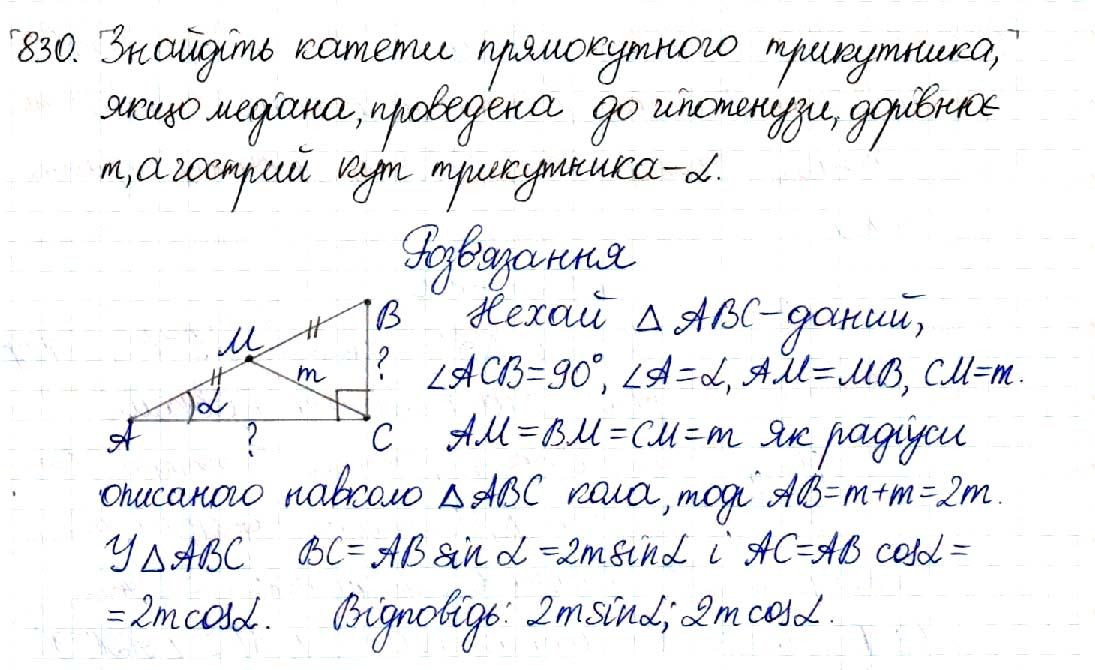 830. Знайдіть катети прямокутного трикутника,
якщо медіана, проведена до гіпотенузи, дорівнює
m, а гострий кут трикутника – α.
Розв'язання
B
M
m
?
α
A
?
C
Нехай △ ABC – даний,
∠ACB = 90°, ∠A = α, AM = MB, CM = m.
AM = BM = CM = m як радіуси
описаного навколо △ ABC кола, тоді AB = m + m = 2m.
У △ ABC BC = AB sin α = 2m sin α і AC = AB cos α =
= 2m cos α. Відповідь: 2m sin α; 2m cos α.